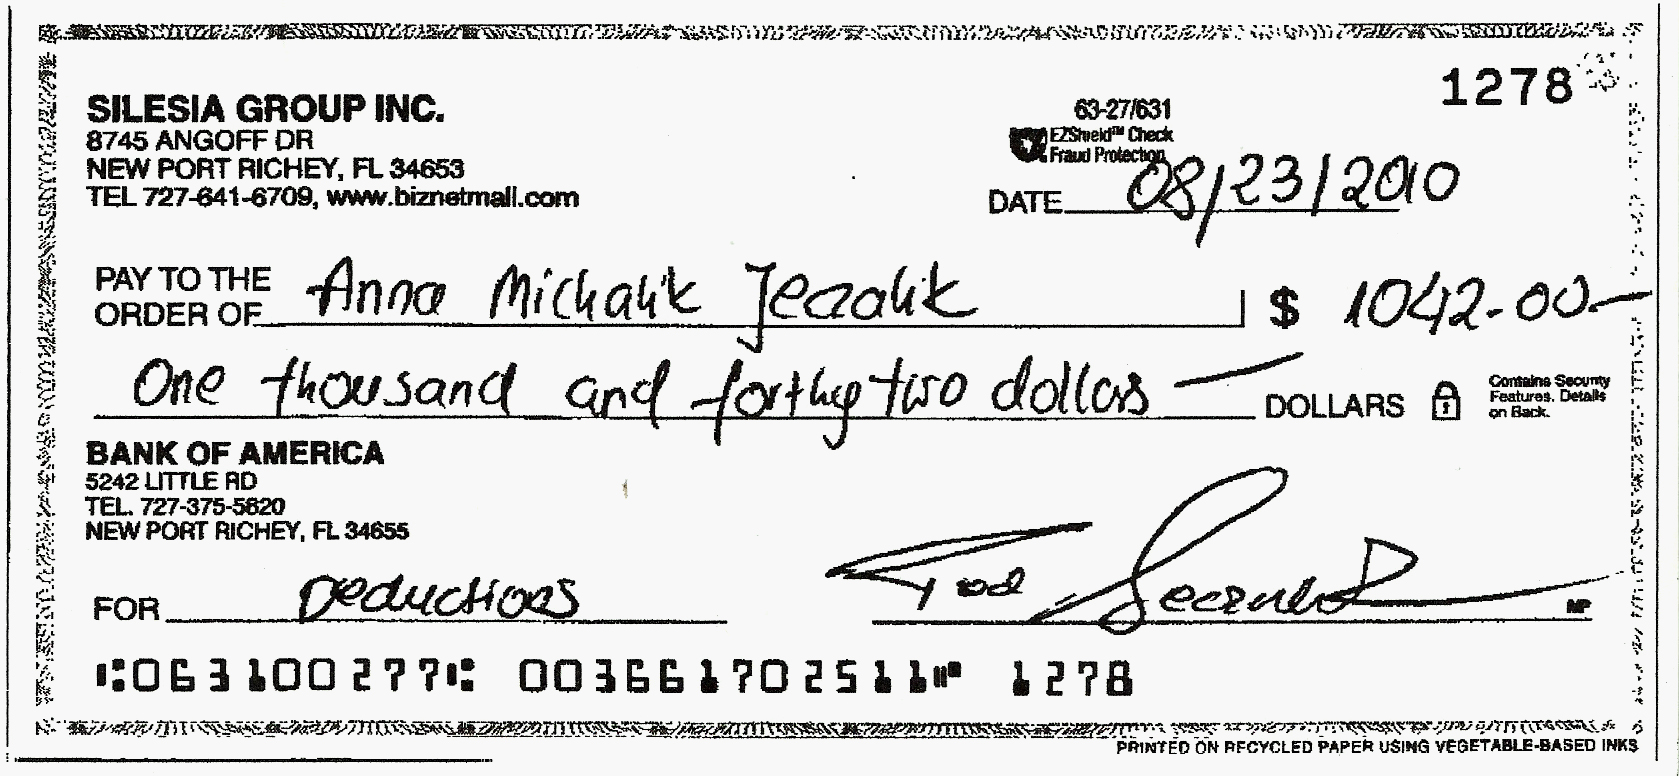 1278
SILESIA GROUP INC.
8745 ANGOFF DR
NEW PORT RICHEY, FL 34653
TEL 727-641-6709, www.biznetmall.com
63-27/631
EZShield™ Check
Fraud Protection
DATE 08/23/2010
PAY TO THE
ORDER OF Anna Michalik Jezalik $ 1042.00
One thousand and forthy two dollars DOLLARS
Contains Security
Features. Details
on Back.
BANK OF AMERICA
5242 LITTLE RD
TEL. 727-375-5820
NEW PORT RICHEY, FL 34655
FOR Deductions
MP
⑆063100277⑆ 003661702511⑈ 1278
PRINTED ON RECYCLED PAPER USING VEGETABLE-BASED INKS